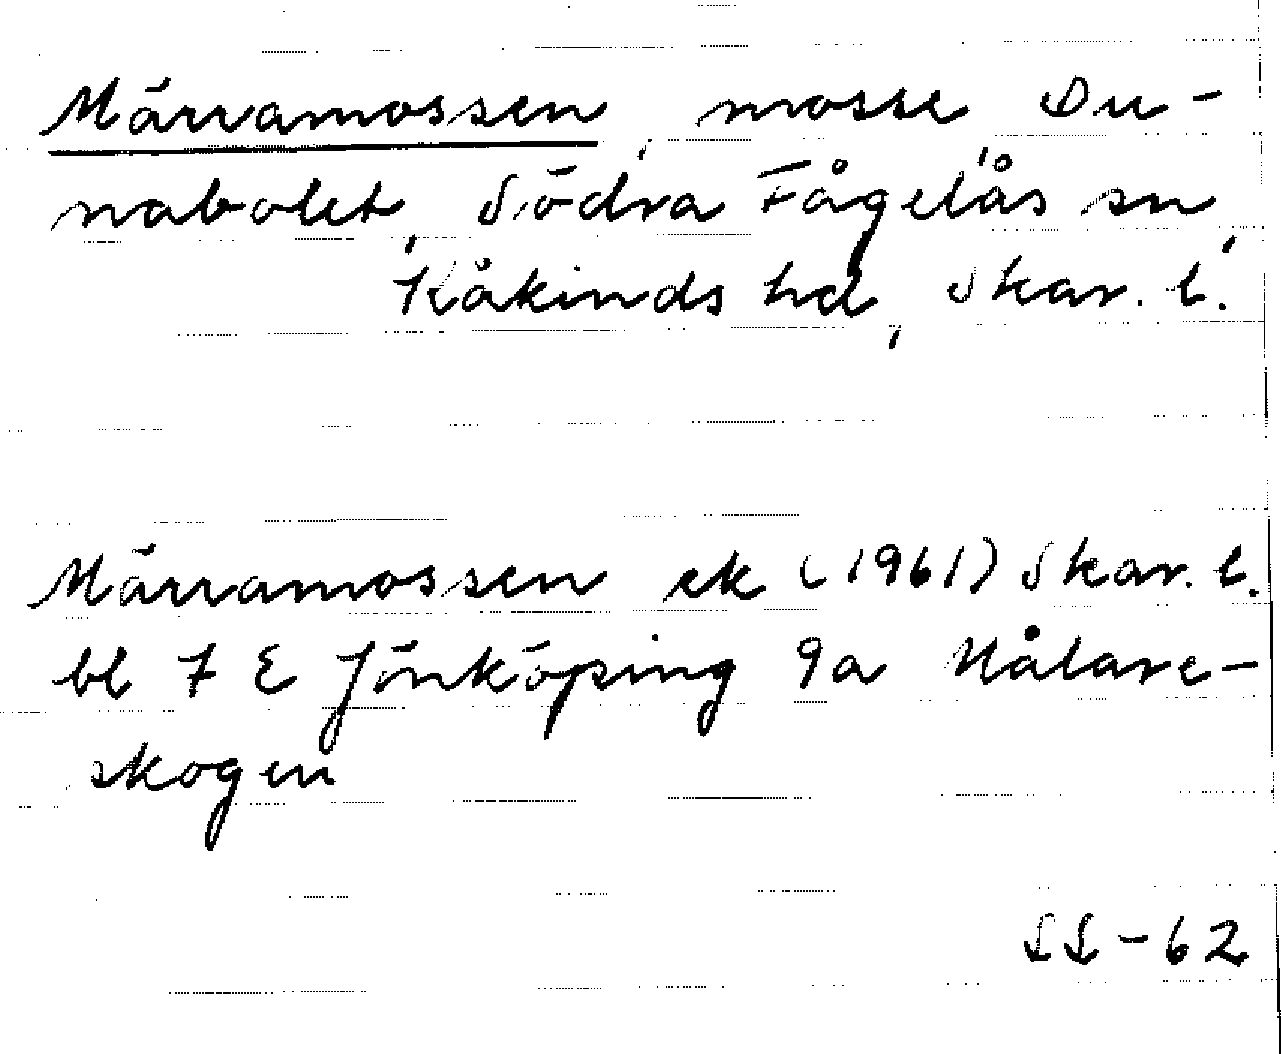 Märramossen, mosse, Du-
nabolet, Södra Fågelås sn,
Kåkinds hd, Skar. l.
Märramossen ek (1961) Skar. l.
bl 7 E Jönköping 9a Hålare-
skogen
SS-62